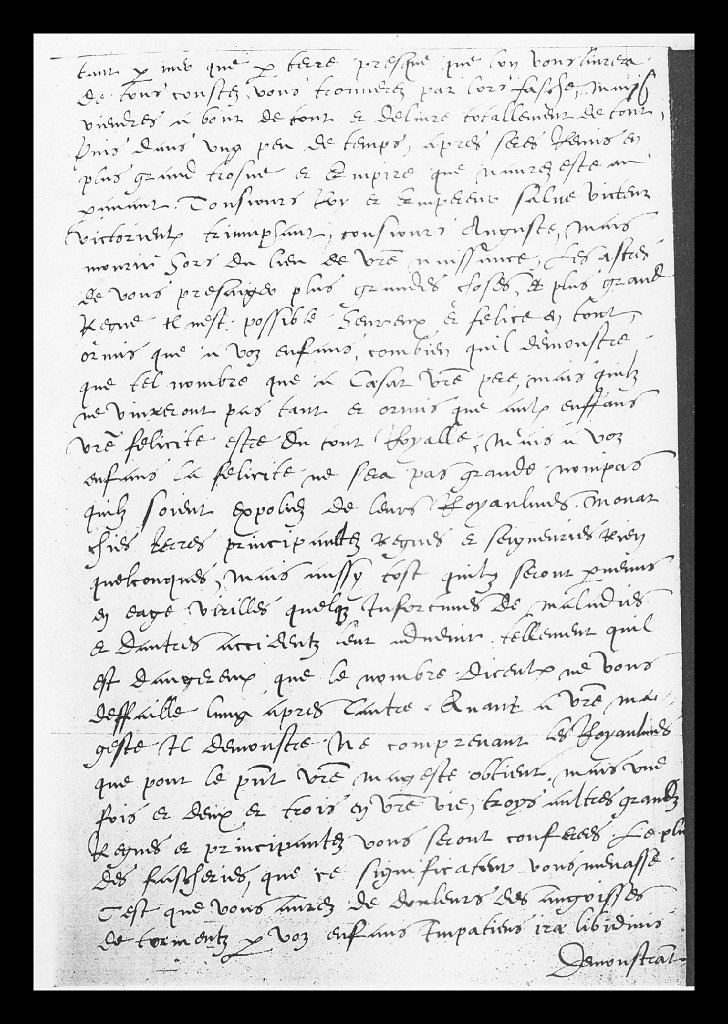 tant p mer que p terre presque que lon vous livrera
de tous coustez, vous trouverez par lors fasché, mais
viendres a bout de tout et delivre totallement de tout,
Puis dans ung peu de temps, apres seres Remis en
plus grand trosne et Empire que naurez esté au
p'avant. Tousiours Roy et Empereur salué victeur
victorieulx triumphant, tousiours Auguste, mais
mourir hors du lieu de vrē naissance, Les astres
de vous presaiger plus grandes choses, et plus grand
Regne Il nest possible heureux et felice en tout,
ormis que a voz enfans, combien quil demonstre
que tel nombre que a vrē pere, mais quilz
ne viveront pas tant et ormis que aulx enffans
vrē felicite estre du tout Royalle, mais a voz
enfans la felicite ne sera pas grande nompas
quilz soient expoliez de leurs Royaulmes Monar
chies terres principaultez Regnes et seigneuries Rien
quelconques, mais aussy tost quilz seront p'venus
en eage virilles quelq Infortunes de maladies
et daultres accidentz leur advenir tellement quil
est dangereux que le nombre diceulx ne vous
deffaille lung apres lautre. Quant a vrē ma-
geste Il demonstre Ne comprenant les Royaulmes
que pour le pn̄t vrē mageste obtient, mais une
fois et deux et trois en vrē vie, troys aultres grandz
Regnes et principaultez vous seront conferés. Le plu
des fascheries, que ce significateur vous menasse
C'est que vous aurez de douleurs des angoisses
de tormentz p voz enfans Impatiens iræ libidinis
Demonstrat